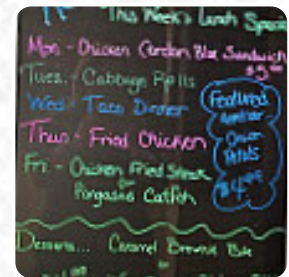 This Week's Lunch Specia
Mon - Chicken Cordon Blue Sandwich
Tues. - Cabbage Rolls
Wed - Taco Dinner
Thur - Fried Chicken
Fri - Chicken Fried Steak
or
Pangasius Catfish
Featured
Onion
Petals
Desserts... Caramel Brownie